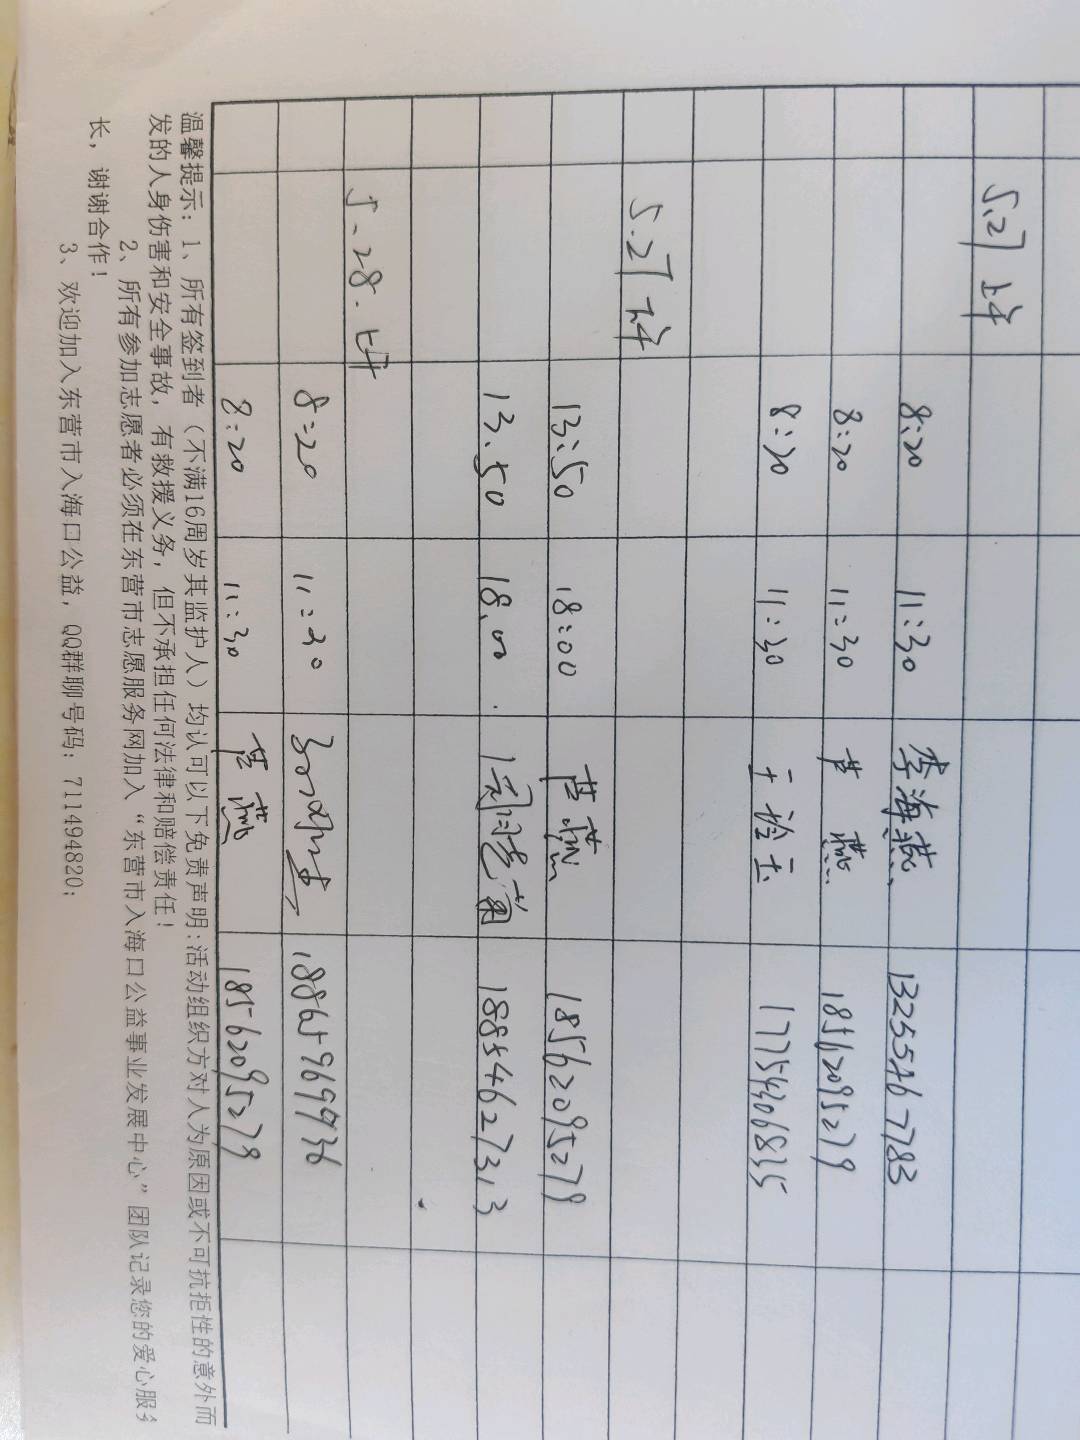 5.27 上午
8:20 11:30 李海燕 13255467783
8:20 11:30 苗燕 18562095279
8:20 11:30
5.27 下午
13:50 18:00 苗燕 18562095279
13.50 18.00. 18854627313
5.28. 上午
8:20 11:30 18865969936
8:20 11:30 苗燕 18562095279
温馨提示：1、所有签到者（不满16周岁其监护人）均认可以下免责声明:活动组织方对人为原因或不可抗拒性的意外而
发的人身伤害和安全事故，有救援义务，但不承担任何法律和赔偿责任！
2、所有参加志愿者必须在东营市志愿服务网加入“东营市入海口公益事业发展中心”团队记录您的爱心服务
长，谢谢合作！
3、欢迎加入东营市入海口公益，QQ群聊号码：711494820；